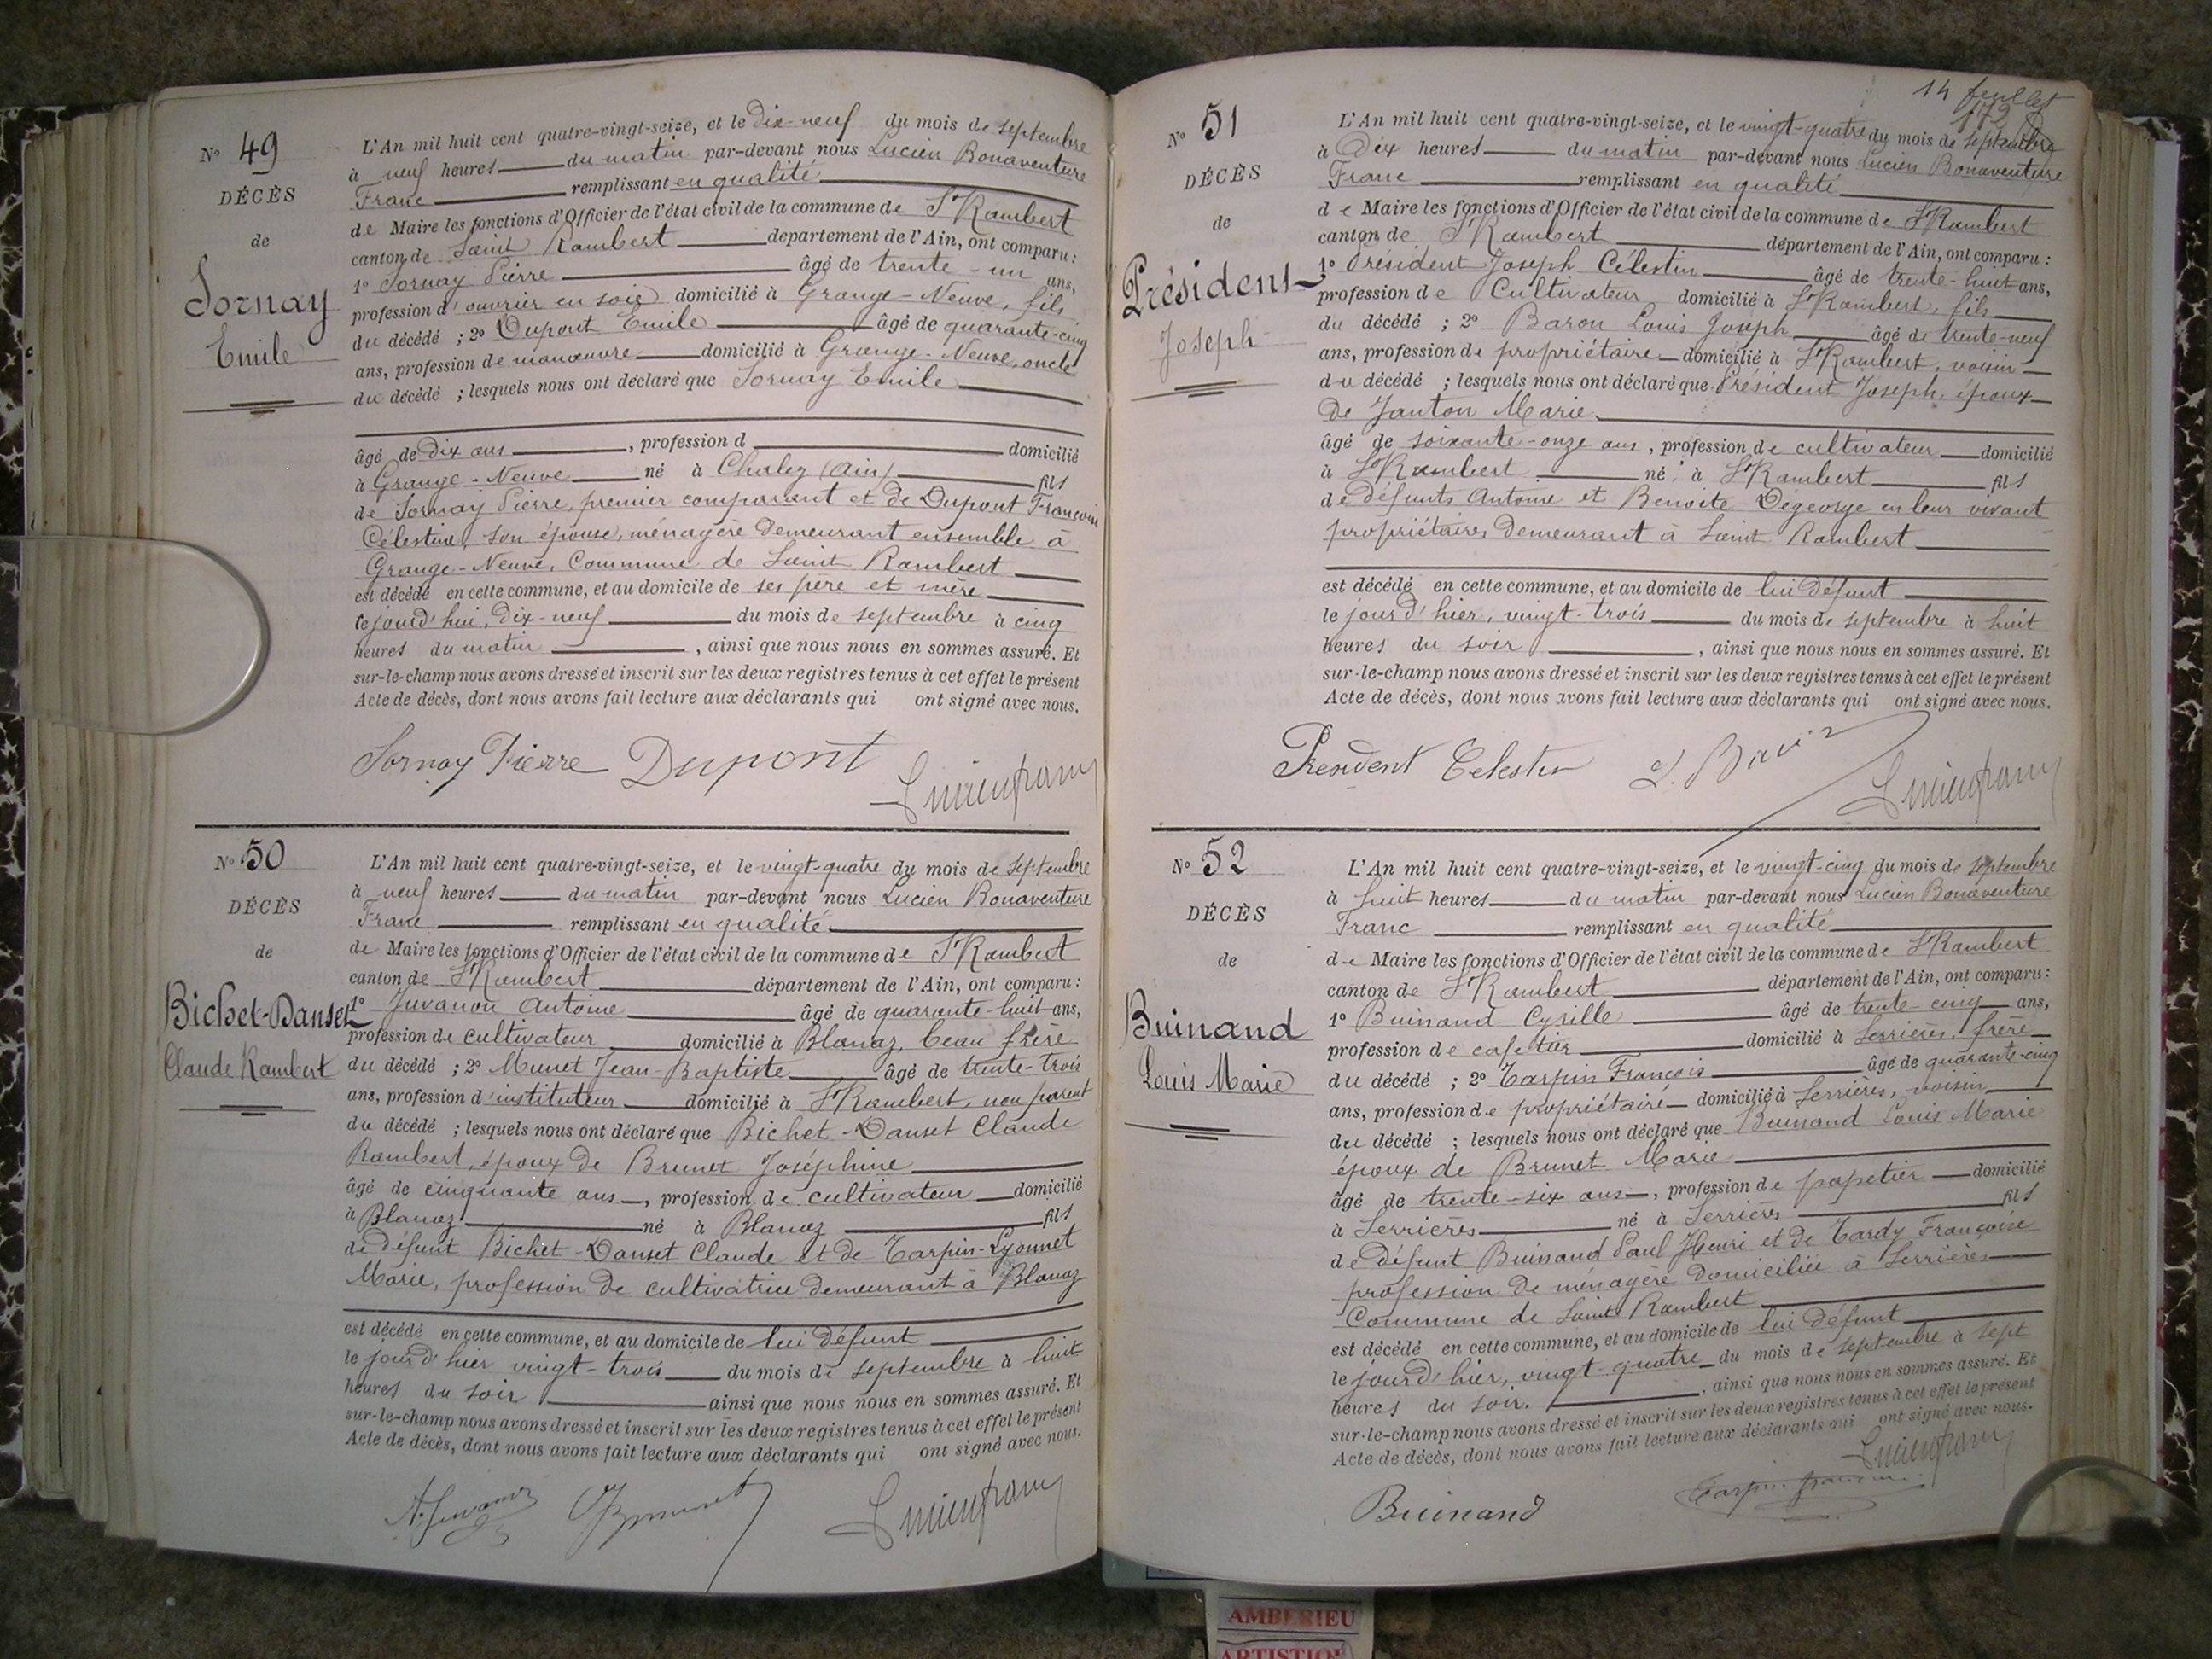 Nº 49
DÉCÈS
de
Sornay
Emile
L'An mil huit cent quatre-vingt-seize, et le Dix-neuf du mois de septembre
à neuf heures du matin par-devant nous Lucien Bonaventure
Franc remplissant en qualité
de Maire les fonctions d'Officier de l'état civil de la commune de St Rambert
canton de Saint Rambert département de l'Ain, ont comparu :
1º Sornay Pierre âgé de trente-un ans,
profession d'ouvrier en soie domicilié à Grange-Neuve, fils
du décédé ; 2º Dupont Emile âgé de quarante-cinq
ans, profession de manœuvre domicilié à Grange-Neuve, oncle
du décédé ; lesquels nous ont déclaré que Sornay Emile
âgé de Dix ans, profession d domicilié
à Grange-Neuve né à Chaley (Ain) fils
de Sornay Pierre, premier comparant et de Dupont Françoise
Célestine, son épouse, ménagère demeurant ensemble à
Grange-Neuve, Commune de Saint Rambert
est décédé en cette commune, et au domicile de ses père et mère
le jourd'hui, Dix-neuf du mois de septembre à cinq
heures du matin, ainsi que nous nous en sommes assuré. Et
sur-le-champ nous avons dressé et inscrit sur les deux registres tenus à cet effet le présent
Acte de décès, dont nous avons fait lecture aux déclarants qui ont signé avec nous.
Sornay Pierre Dupont Lucien franc
Nº 50
DÉCÈS
de
Bichet-Danset
Claude Rambert
L'An mil huit cent quatre-vingt-seize, et le vingt-quatre du mois de septembre
à neuf heures du matin par-devant nous Lucien Bonaventure
Franc remplissant en qualité
de Maire les fonctions d'Officier de l'état civil de la commune de St Rambert
canton de St Rambert département de l'Ain, ont comparu :
1º Juvanon Antoine âgé de quarante-huit ans,
profession de cultivateur domicilié à Blanaz, beau frère
du décédé ; 2º Munet Jean-Baptiste âgé de trente-trois
ans, profession d'instituteur domicilié à St Rambert, non parent
du décédé ; lesquels nous ont déclaré que Bichet-Danset Claude
Rambert, époux de Brunet Joséphine
âgé de cinquante ans, profession de cultivateur domicilié
à Blanaz né à Blanaz fils
de défunt Bichet-Danset Claude et de Tarpin-Lyonnet
Marie, profession de cultivatrice demeurant à Blanaz
est décédé en cette commune, et au domicile de lui défunt
le jour d'hier vingt-trois du mois de septembre à huit
heures du soir ainsi que nous nous en sommes assuré. Et
sur-le-champ nous avons dressé et inscrit sur les deux registres tenus à cet effet le présent
Acte de décès, dont nous avons fait lecture aux déclarants qui ont signé avec nous.
A. Juvanon Lucien franc
14 feuillet
Nº 51
DÉCÈS
de
Président
Joseph
L'An mil huit cent quatre-vingt-seize, et le vingt-quatre du mois de septembre
à Dix heures du matin par-devant nous Lucien Bonaventure
Franc remplissant en qualité
de Maire les fonctions d'Officier de l'état civil de la commune de St Rambert
canton de St Rambert département de l'Ain, ont comparu :
1º Président Joseph Célestin âgé de trente-huit ans,
profession de Cultivateur domicilié à St Rambert, fils
du décédé ; 2º Baron Louis Joseph âgé de trente-neuf
ans, profession de propriétaire domicilié à St Rambert, voisin
du décédé ; lesquels nous ont déclaré que Président Joseph, époux
de Janton Marie
âgé de soixante-onze ans, profession de cultivateur domicilié
à St Rambert né à St Rambert fils
de défunts Antoine et Benoite Degeorge en leur vivant
propriétaires demeurant à Saint Rambert
est décédé en cette commune, et au domicile de lui défunt
le jour d'hier, vingt-trois du mois de septembre à huit
heures du soir, ainsi que nous nous en sommes assuré. Et
sur-le-champ nous avons dressé et inscrit sur les deux registres tenus à cet effet le présent
Acte de décès, dont nous avons fait lecture aux déclarants qui ont signé avec nous.
President Celestin L. Baron Lucien franc
Nº 52
DÉCÈS
de
Buinand
Louis Marie
L'An mil huit cent quatre-vingt-seize, et le vingt-cinq du mois de septembre
à huit heures du matin par-devant nous Lucien Bonaventure
Franc remplissant en qualité
de Maire les fonctions d'Officier de l'état civil de la commune de St Rambert
canton de St Rambert département de l'Ain, ont comparu :
1º Buinand Cyrille âgé de trente cinq ans,
profession de cafetier domicilié à Serrières, frère
du décédé ; 2º Tarpin François âgé de quarante-cinq
ans, profession de propriétaire domicilié à Serrières, voisin
du décédé ; lesquels nous ont déclaré que Buinand Louis Marie
époux de Brunet Marie
âgé de trente-six ans, profession de papetier domicilié
à Serrieres né à Serrieres fils
de défunt Buinand Paul Henri et de Tardy Françoise
profession de ménagère domiciliée à Serrières
Commune de Saint Rambert
est décédé en cette commune, et au domicile de lui défunt
le jour d'hier, vingt-quatre du mois de septembre à sept
heures du soir. , ainsi que nous nous en sommes assuré. Et
sur-le-champ nous avons dressé et inscrit sur les deux registres tenus à cet effet le présent
Acte de décès, dont nous avons fait lecture aux déclarants qui ont signé avec nous.
Lucien franc
Buinand Tarpin françois
AMBERIEU